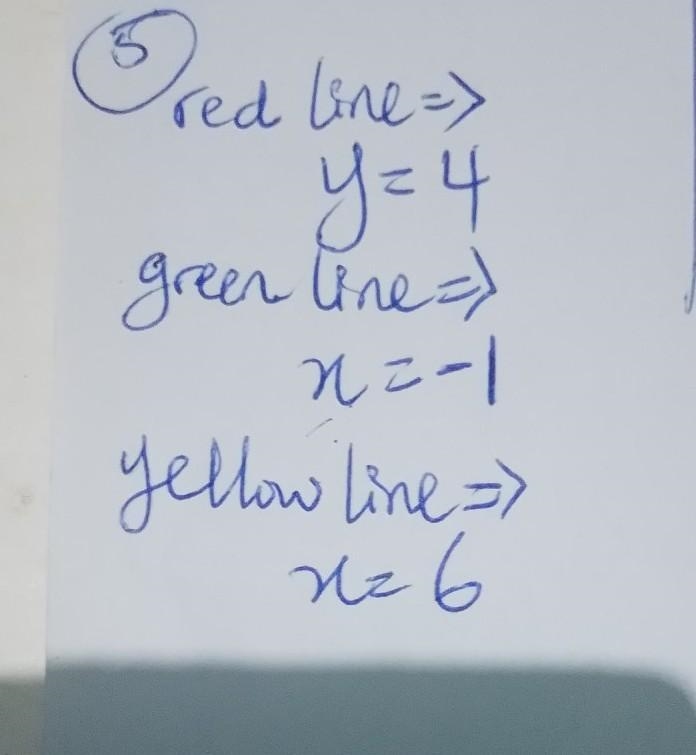 5
red line =>
y = 4
green line =>
x = -1
yellow line =>
x = 6